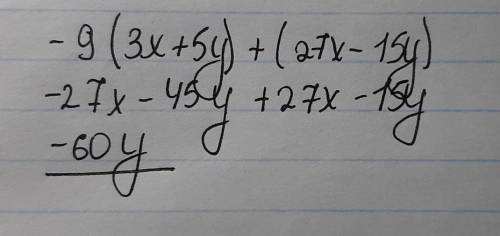 - 9 (3x+5y) + (27x - 15y)
-27x - 45y + 27x - 15y
-60y